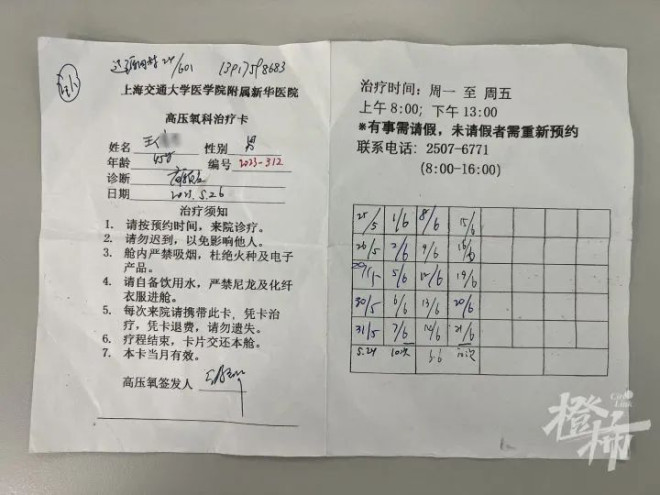 24/601
上海交通大学医学院附属新华医院
高压氧科治疗卡
姓名 王 性别 男
年龄 编号 2023-312
诊断
日期 2023.5.26
治疗须知
1. 请按预约时间，来院诊疗。
2. 请勿迟到，以免影响他人。
3. 舱内严禁吸烟，杜绝火种及电子
产品。
4. 请自备饮用水，严禁尼龙及化纤
衣服进舱。
5. 每次来院请携带此卡，凭卡治
疗，凭卡退费，请勿遗失。
6. 疗程结束，卡片交还本舱。
7. 本卡当月有效。
高压氧签发人
治疗时间：周一 至 周五
上午 8:00；下午 13:00
*有事需请假，未请假者需重新预约
联系电话：2507-6771
(8:00-16:00)
25/5 1/6 8/6 15/6
26/5 2/6 9/6 16/6
5/6 12/6 19/6
30/5 6/6 13/6 20/6
31/5 7/6 14/6 21/6
5.24 10次 6.6 10次
橙柿